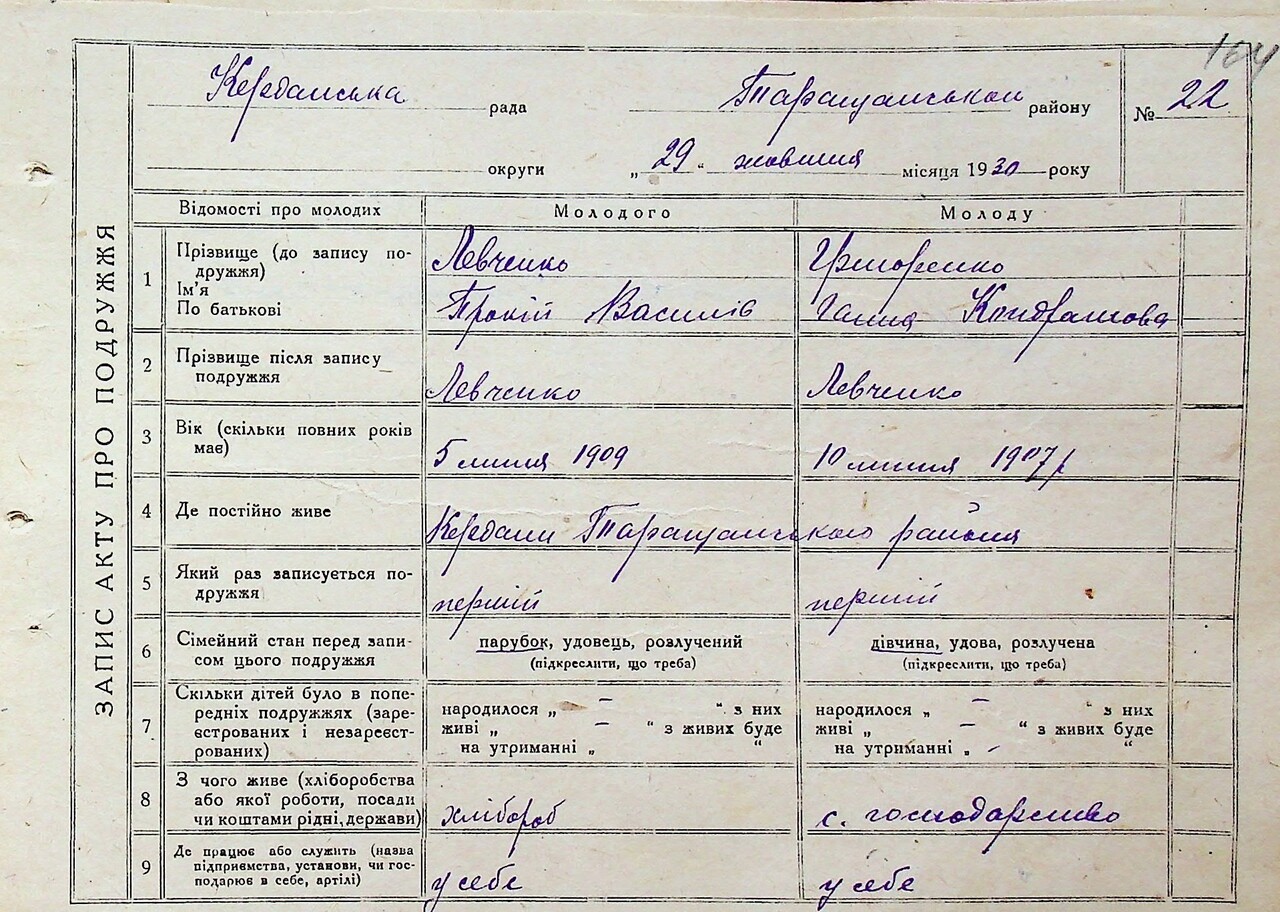 164
Керданська рада Таращанськои району № 22
округи „ 29 “ жовтня місяця 1930 року
ЗАПИС АКТУ ПРО ПОДРУЖЖЯ
Відомості про молодих Молодого Молоду
1 Прізвище (до запису по-
дружжя)
Левченко Григоренко
Ім'я
По батькові
Прокій Василів Ганна Кондратова
2 Прізвище після запису
подружжя
Левченко Левченко
3 Вік (скільки повних років
має)
5 липня 1909 10 липня 1907 р
4 Де постійно живе Кердани Таращанського района
5 Який раз записується по-
дружжя
перший перший
6 Сімейний стан перед запи-
сом цього подружжя
парубок, удовець, розлучений дівчина, удова, розлучена
(підкреслити, що треба) (підкреслити, що треба)
7 Скільки дітей було в попе-
редніх подружжях (заре-
єстрованих і незареєст-
рованих)
народилося „ — “ з них народилося „ — “ з них
живі „ — “ з живих буде живі „ — “ з живих буде
на утриманні „ “ на утриманні „ - “
8 З чого живе (хліборобства
або якої роботи, посади
чи коштами рідні, держави)
хлібороб с. господарство
9 Де працює або служить (назва
підприємства, установи, чи гос-
подарює в себе, артілі)
у себе у себе